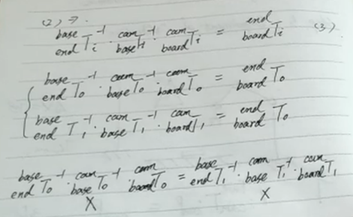 (2) ⇒
base end T_i^-1 · cam base T_i^-1 · cam board T_i = end board T_i (3).
base end T_0^-1 · cam base T_0^-1 · cam board T_0 = end board T_0
base end T_1^-1 · cam base T_1^-1 · cam board T_1 = end board T_0
base end T_0^-1 · cam base T_0^-1 · cam board T_0 = base end T_1^-1 · cam base T_1^-1 · cam board T_1
X X